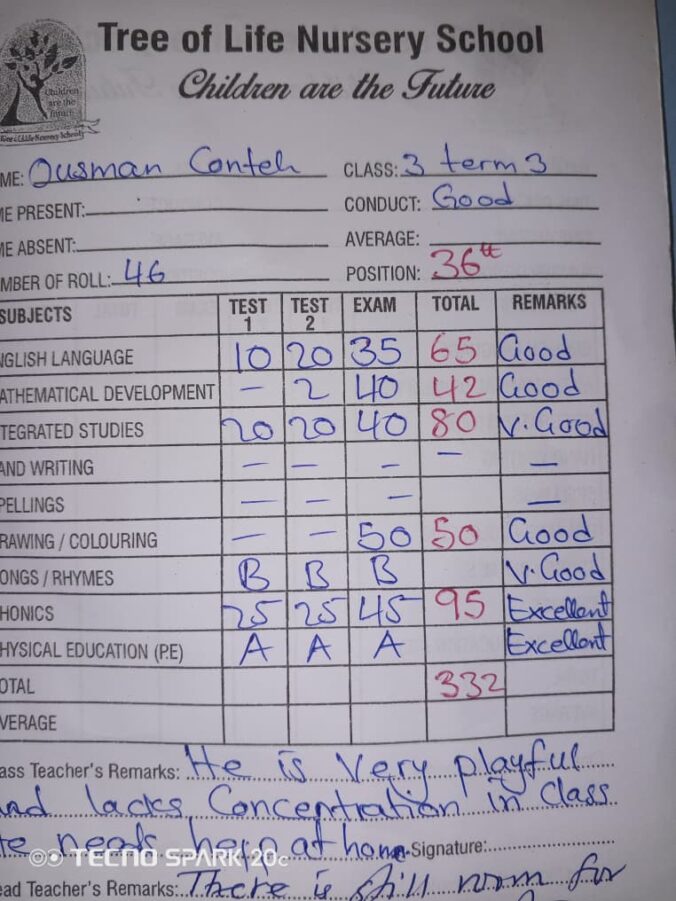 Children
are the
future
Tree of Life Nursery School
Tree of Life Nursery School
Children are the Future
ME: Ousman Conteh CLASS: 3 term 3
ME PRESENT: CONDUCT: Good
ME ABSENT: AVERAGE:
MBER OF ROLL: 46 POSITION: 36th
SUBJECTS TEST 1 TEST 2 EXAM TOTAL REMARKS
NGLISH LANGUAGE 10 20 35 65 Good
ATHEMATICAL DEVELOPMENT - 2 40 42 Good
TEGRATED STUDIES 20 20 40 80 V. Good
AND WRITING - - - - -
PELLINGS - - - -
RAWING / COLOURING - - 50 50 Good
ONGS / RHYMES B B B V. Good
HONICS 25 25 45 95 Excellent
HYSICAL EDUCATION (P.E) A A A Excellent
OTAL 332
VERAGE
ass Teacher's Remarks: He is Very playful
and lacks Concentration in Class
He needs help at home Signature:
TECNO SPARK 20c
ead Teacher's Remarks: There is still room for